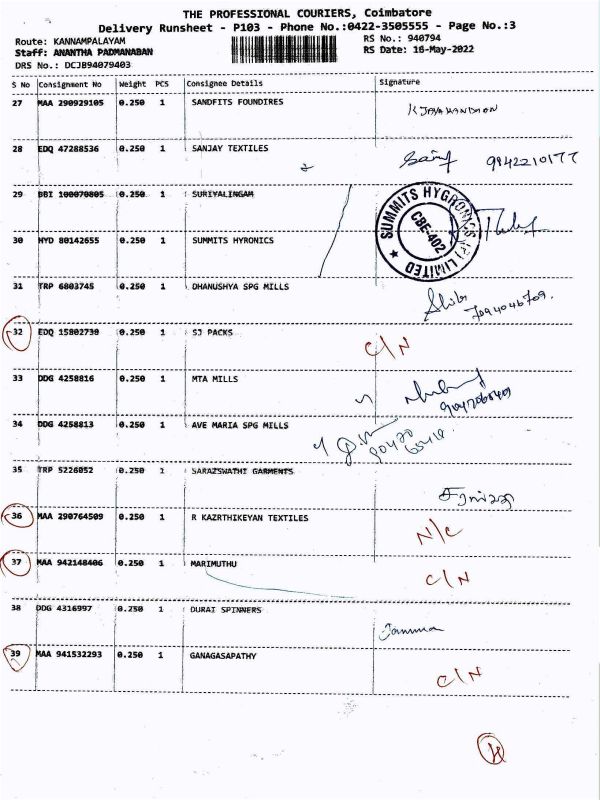 THE PROFESSIONAL COURIERS, Coimbatore
Delivery Runsheet - P103 - Phone No.:0422-3505555 - Page No.:3
Route: KANNAMPALAYAM RS No.: 940794
Staff: ANANTHA PADMANABAN RS Date: 16-May-2022
DRS No.: DCJB94079403
S No Consignment No Weight PCS Consignee Details Signature
27 MAA 290929105 0.250 1 SANDFITS FOUNDIRES
28 EDQ 47288536 0.250 1 SANJAY TEXTILES 9942210177
29 BBI 100070805 0.250 1 SURIYALINGAM
SUMMITS HYGRONICS (P) LIMITED
CBE-402
30 HYD 80142655 0.250 1 SUMMITS HYRONICS
31 TRP 6803745 0.250 1 DHANUSHYA SPG MILLS
32 EDQ 15802739 0.250 1 SJ PACKS C/N
33 DDG 4258816 0.250 1 MTA MILLS
34 DDG 4258813 0.250 1 AVE MARIA SPG MILLS
35 TRP 5226052 0.250 1 SARAZSWATHI GARMENTS
36 MAA 290764509 0.250 1 R KAZRTHIKEYAN TEXTILES N/C
37 MAA 942148406 0.250 1 MARIMUTHU C/N
38 DDG 4316997 0.250 1 DURAI SPINNERS
39 MAA 941532293 0.250 1 GANAGASAPATHY C/N